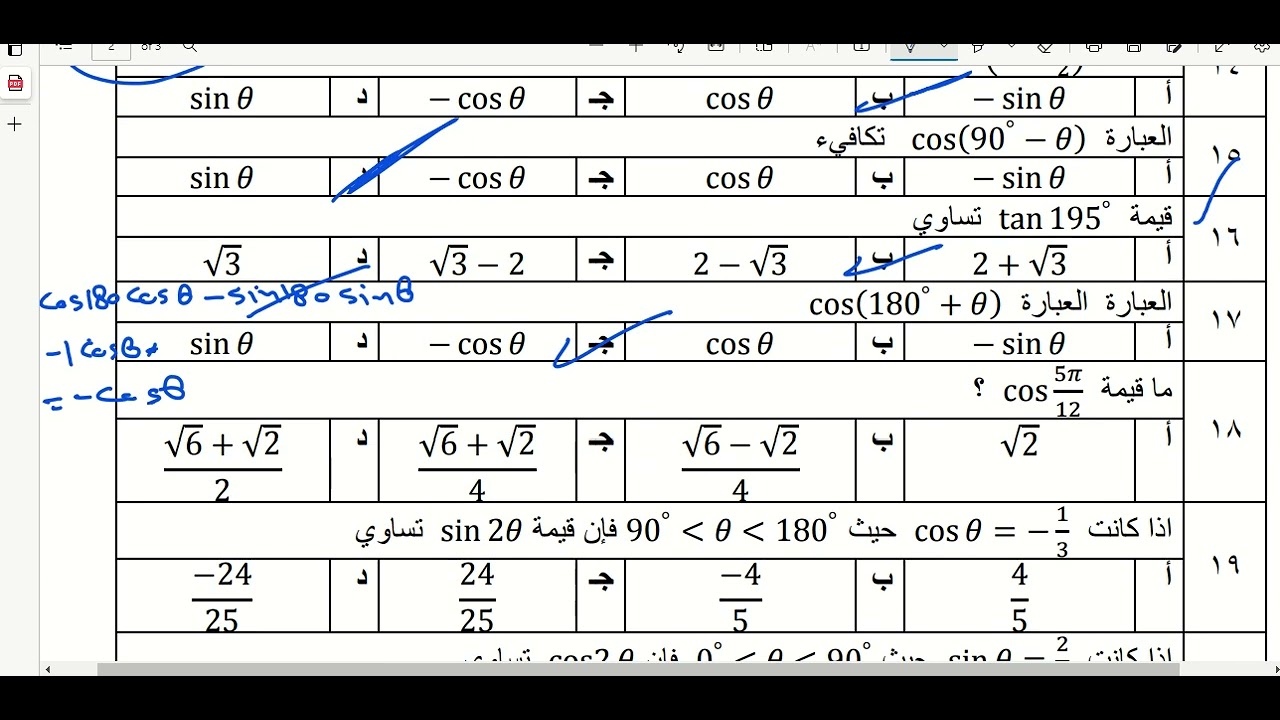 2 of 3
١٤
أ − sin θ ب cos θ جـ − cos θ د sin θ
١٥ العبارة cos(90° − θ) تكافيء
أ − sin θ ب cos θ جـ − cos θ د sin θ
١٦ قيمة tan 195° تساوي
أ 2 + √3 ب 2 − √3 جـ √3 − 2 د √3
١٧ العبارة العبارة cos(180° + θ)
أ − sin θ ب cos θ جـ − cos θ د sin θ
cos180 cos θ − sin180 sin θ
−1 cos θ
= − cos θ
١٨ ما قيمة cos 5π/12 ؟
أ √2 ب (√6 − √2)/4 جـ (√6 + √2)/4 د (√6 + √2)/2
١٩ اذا كانت cos θ = −1/3 حيث 90° < θ < 180° فإن قيمة sin 2θ تساوي
أ 4/5 ب −4/5 جـ 24/25 د −24/25
اذا كانت sin θ = 2 حيث 0° < θ < 90° فإن cos2 θ تساوي